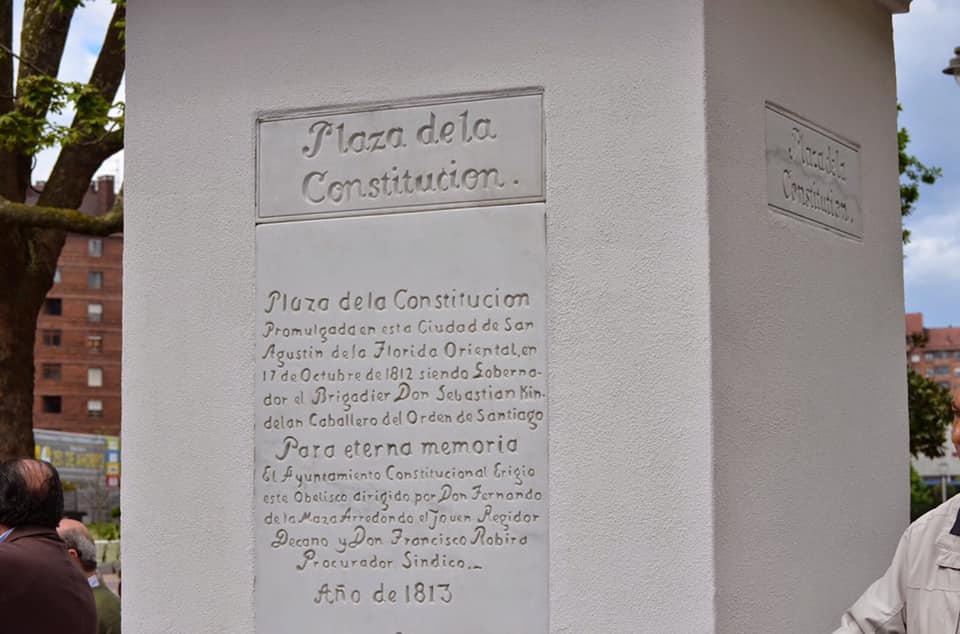 Plaza dela
Constitucion.
Plaza dela
Constitucion.
Plaza dela Constitucion
Promulgada en esta Ciudad de San
Agustin dela Florida Oriental, en
17 de Octubre de 1812 siendo Goberna-
dor el Brigadier Don Sebastian Kin-
delan Caballero del Orden de Santiago
Para eterna memoria
El Ayuntamiento Constitucional Erigio
este Obelisco dirigido por Don Fernando
de la Maza Arredondo el Joven Regidor
Decano y Don Francisco Robira
Procurador Sindico._
Año de 1813